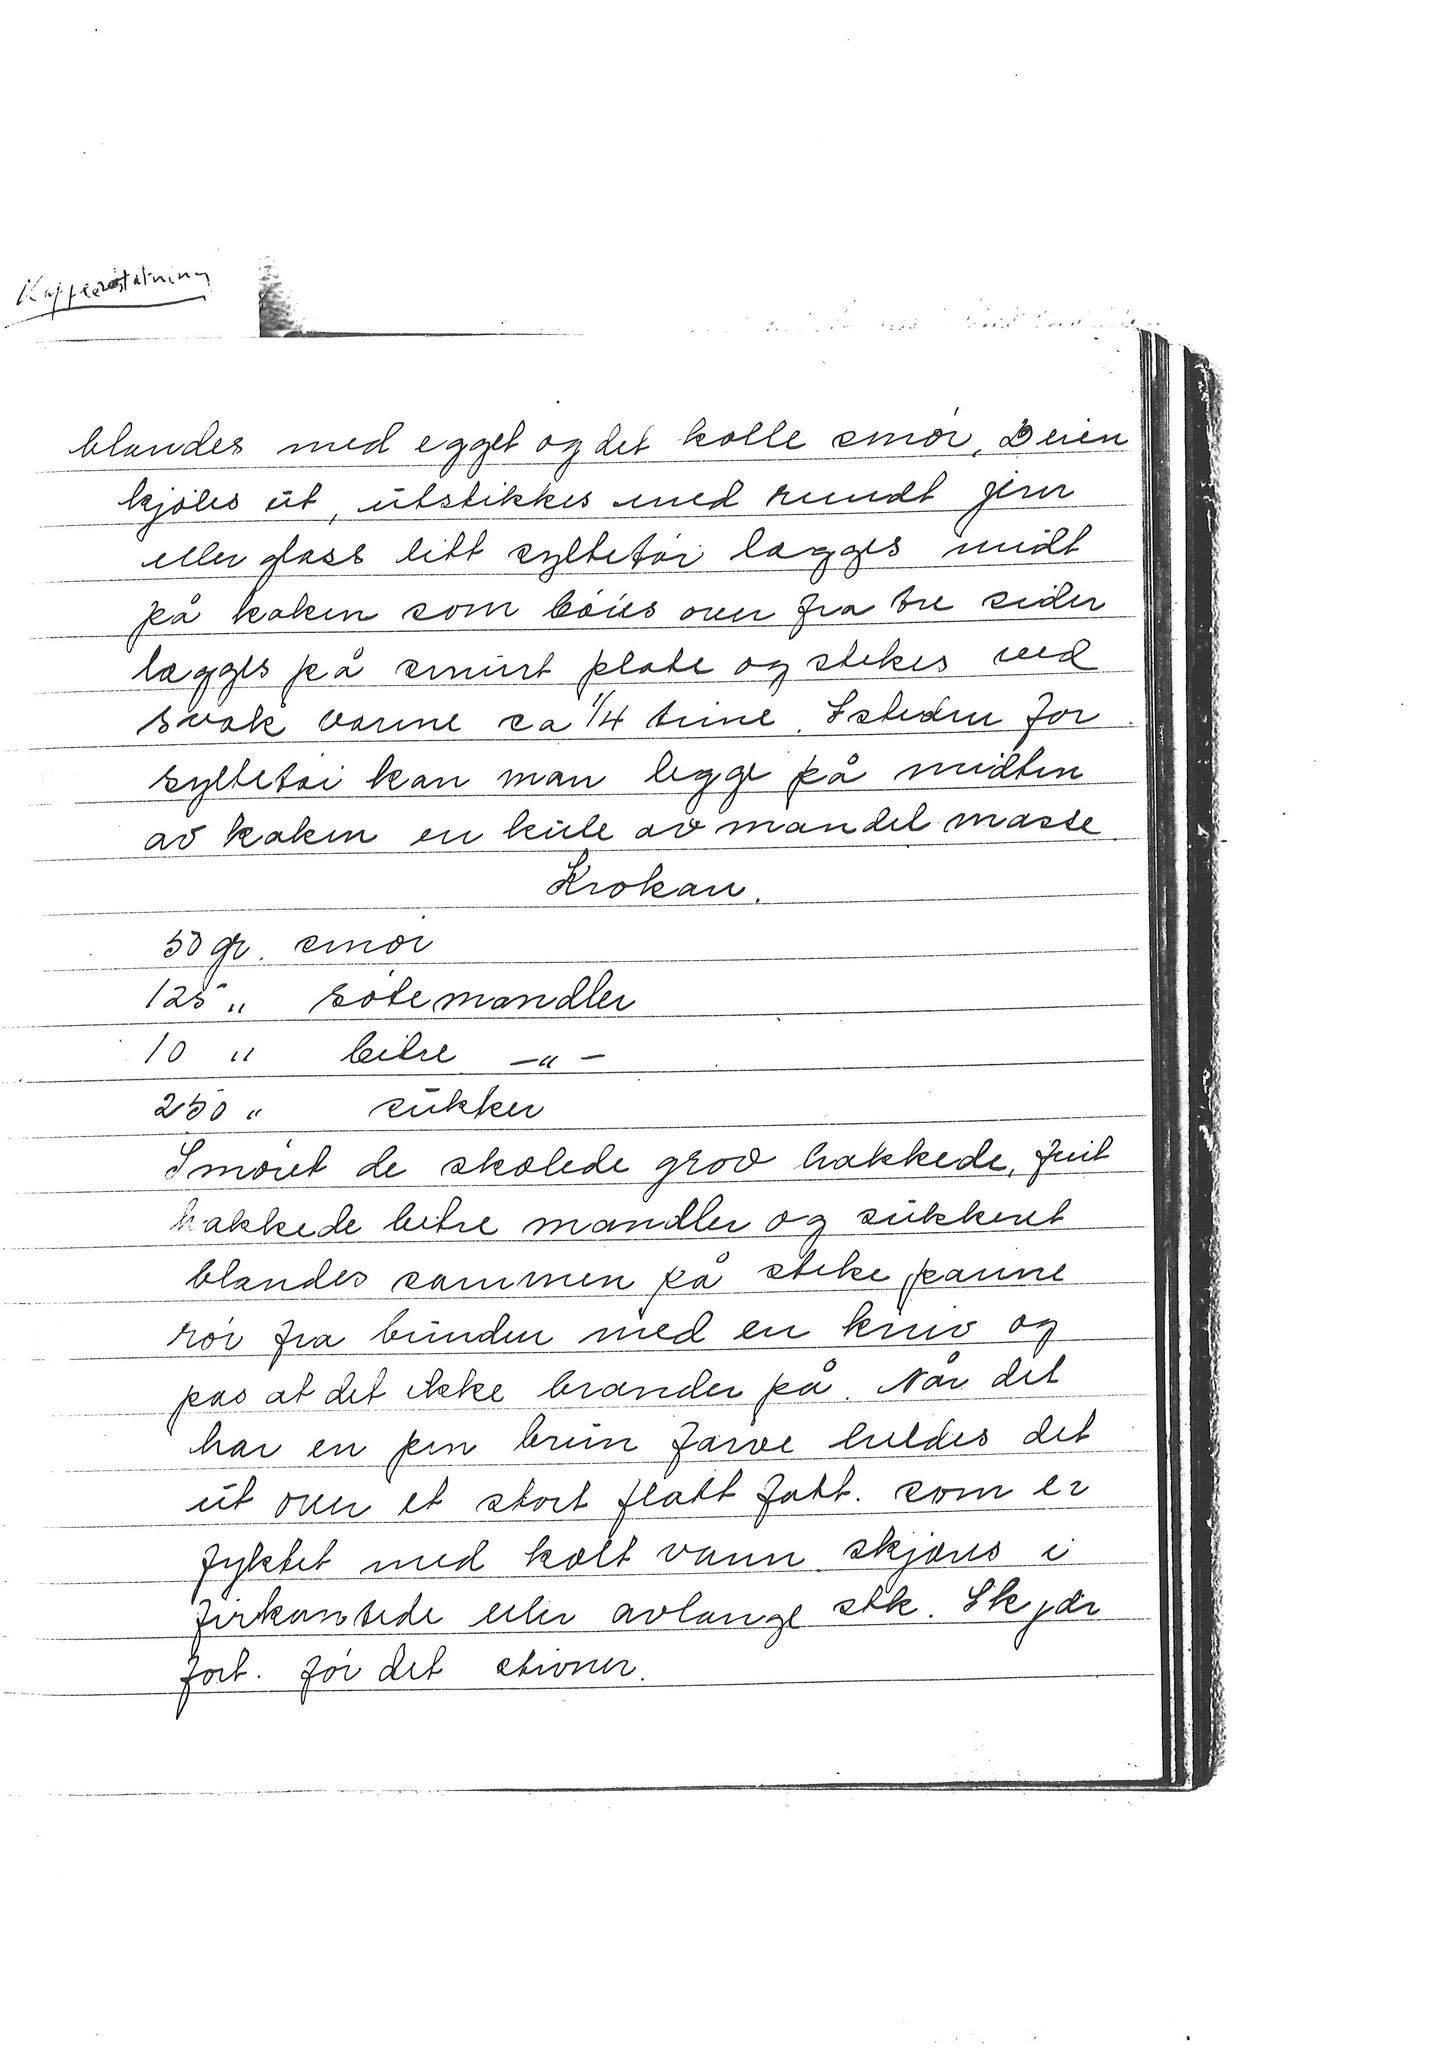 Kaffeerstatning
blandes med egget og det kolle smør, Deien
kjøles ut, utstikkes med rundt jern
eller glass litt syltetøi lægges midt
på kaken som bøies over fra tre sider
lægges på smurt plate og stekes ved
svak varme ca 1/4 time. Isteden for
syltetøi kan man legge på midten
av kaken en kule av mandel masse
Krokan.
50 gr. smør
125 " søte mandler
10 " bitre -"-
250 " sukker
Smøret de skolede grov hakkede, fint
hakkede bitre mandler og sukkeret
blandes sammen på steke panne
rør fra bunden med en kniv og
pas at det ikke brander på. Når det
har en pen brun farve heldes det
ut over et stort flatt fatt. som er
fyktet med kolt vann skjæres i
firkantede eller avlange stk. Skjær
fort. før det stivner.